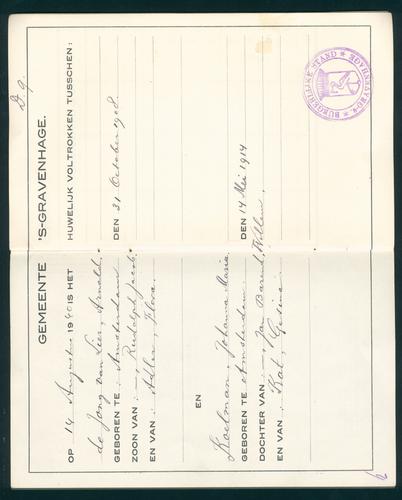 D 9.
GEMEENTE 'S-GRAVENHAGE.
OP 14 Augustus 1940 IS HET HUWELIJK VOLTROKKEN TUSSCHEN:
de Jong van Lier, Arnold.
GEBOREN TE: Amsterdam DEN 31 October 1908.
ZOON VAN: —, Rudolph Jacob,
EN VAN: Adler, Flora.
EN
Koelman, Johanna Maria
GEBOREN TE Amsterdam DEN 14 Mei 1914
DOCHTER VAN: —, Jan Barend Willem,
EN VAN: Kat, Gesina.
BURGERLIJKE STAND
'S-GRAVENHAGE